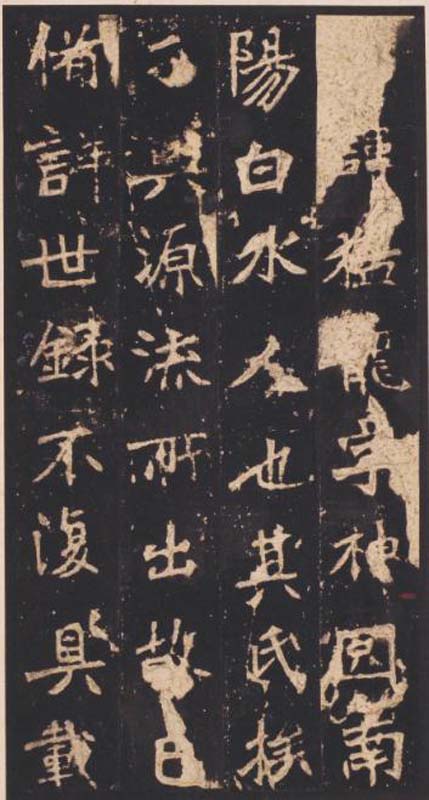 諱猛龍字神囧南
陽白水人也其氏族
源流所出故已
備詳世錄不復具載